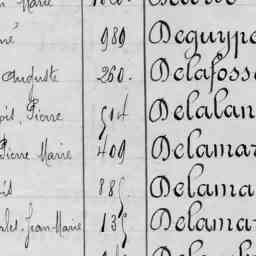 Marie
né 989 Deguype
Auguste 260. Delafoss
Pierre 514 Delalan
Pierre Marie 409 Delamar
885 Delama
Jean-Marie 135 Delamar